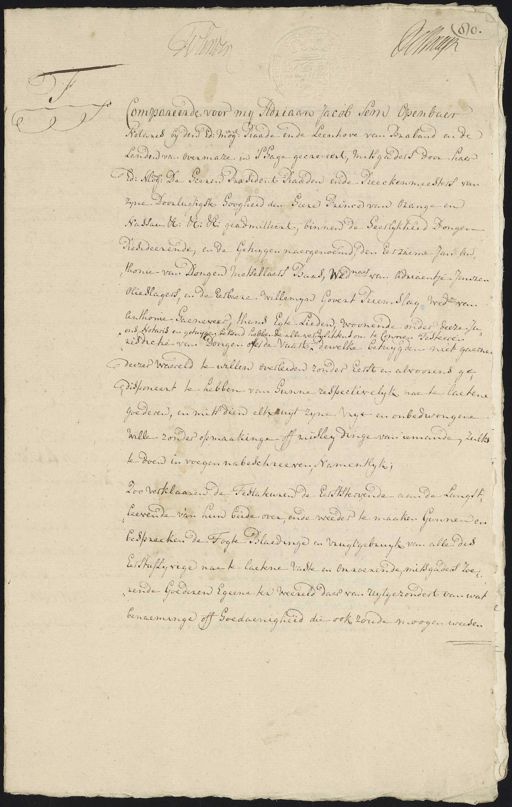 80.
Compareerde voor my Adriaan Jacob Sem Openbaer
Notaris by den Ed: Mog: Raade ende Leenhove van Braband en de
Landen van overmaze in S'Hage gecreeert, mitsgaders door haer
Ed: Mog: De Heeren President Raaden ende Reeckenmeesters van
zyne Doorlugtigste Hoogheid den Heere Prince van Orange en
Nassau &c: &c: &c: geadmitteert, binnen de Heerlykheid Dongen
Resideerende, en de Getuygen naergenoemd, den Eerzaeme
thonie van Dongen Baas, Wed naer van Adriaentje Janssen
en de Eerbaere Willemyn Govert Wed we van
Anthonie thans Egte Lieden, woonende onder deeze
en Notaris en getuygen bekend
van Dongen dewelke betuygden niet gaerne
deeze Waereld te willen overleiden zonder Eerst en alvoorens ge
disponeert te hebben van hunne respectivelyk nae te laetene
goederen, en mits dien elk uyt zyne vrye en onbedwongene
wille zonder opmaakinge off misleydinge van iemande, zulks
te doen in voegen nabeschreeven, Namentlyk;
Zoo verklaarende Testateuren de Eerststervende aan de Langst
leevende van hun beide over, ende weeder te maaken Gunnen en
bespreeken de Togte Bladinge en vrugtgebruyk van alle des
Eerststervege nae te laetene vaste en onroerende, mitsgaders Roe-
rende Goederen Egeene te Weereld daer van uytgezondert van wat
benaeminge off Goedaenigheid die ook zoude moogen weesen